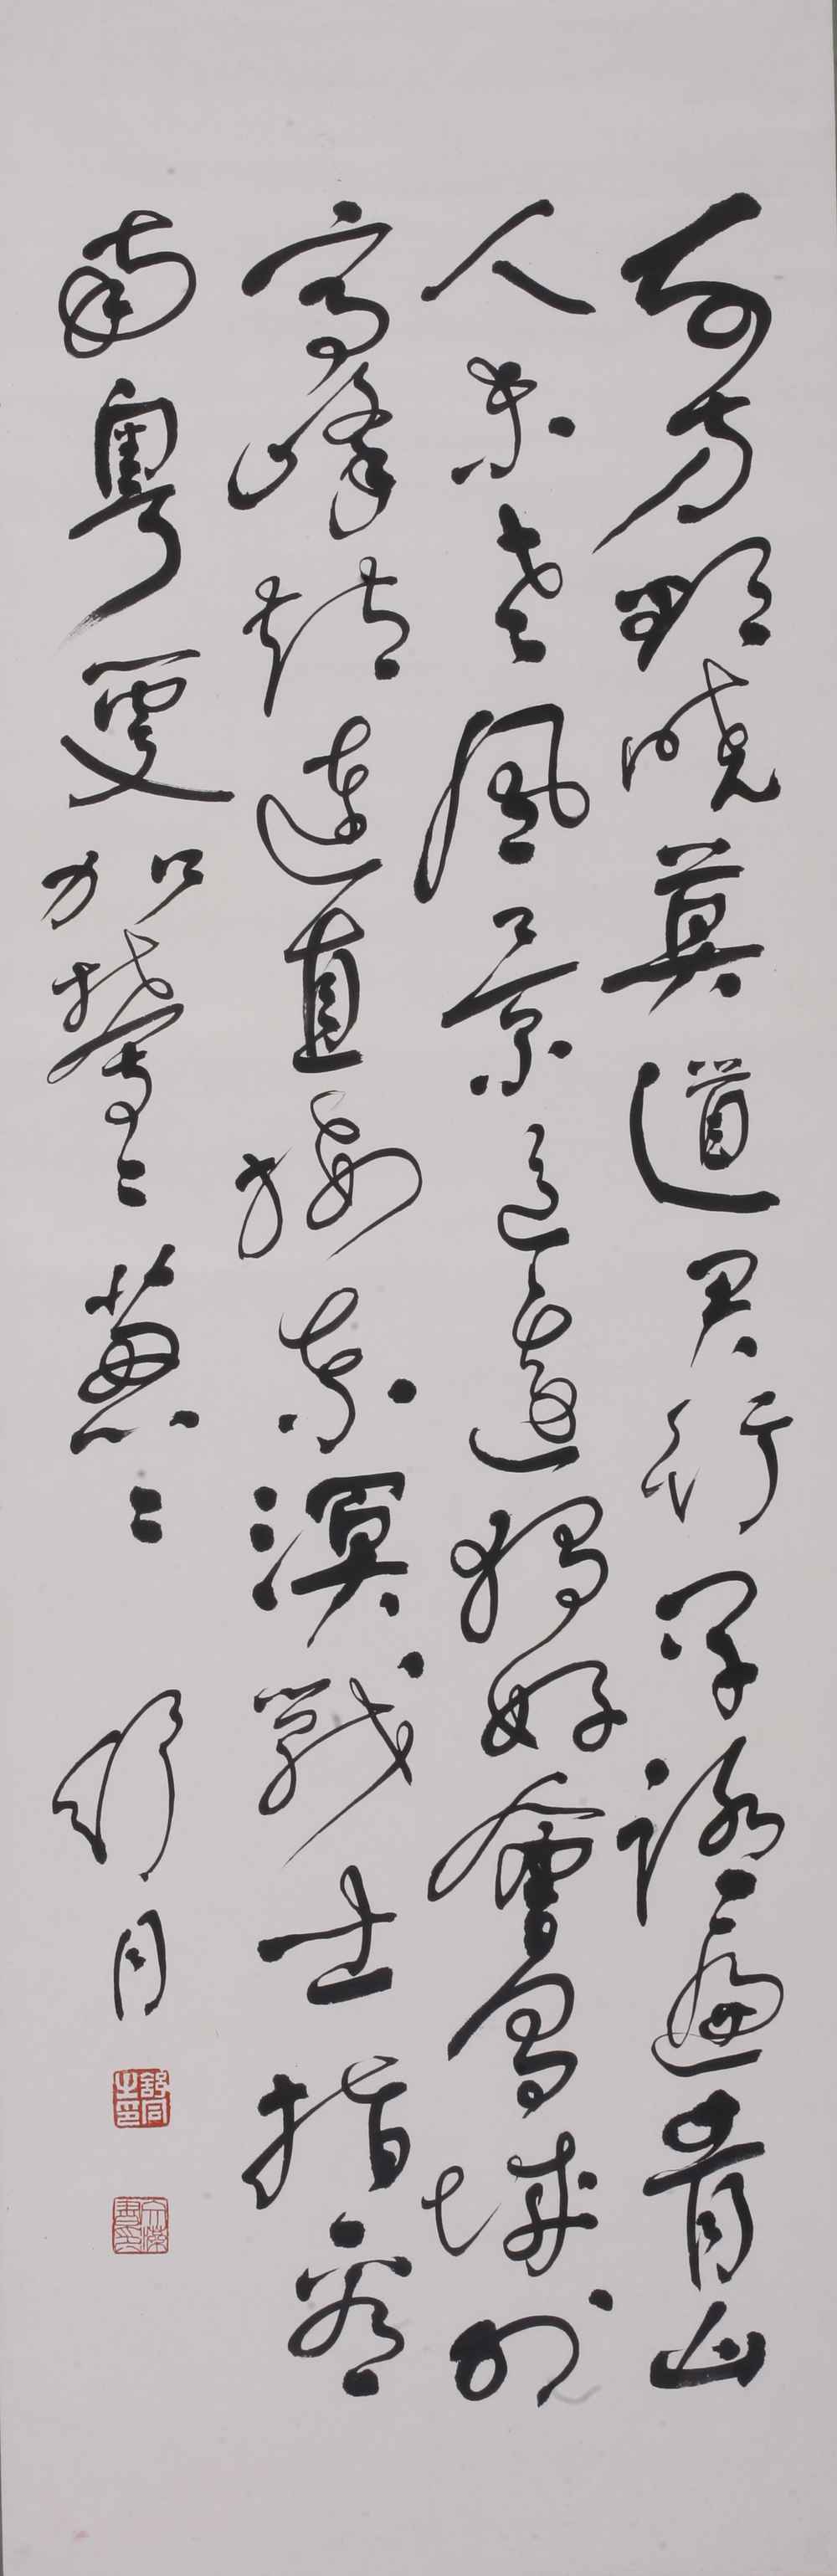 東方欲曉莫道君行早踏遍青山
人未老風景這邊獨好會昌城外
高峰顛連直接東溟戰士指看
南粵更加鬱々蔥々
舒同
舒同之印